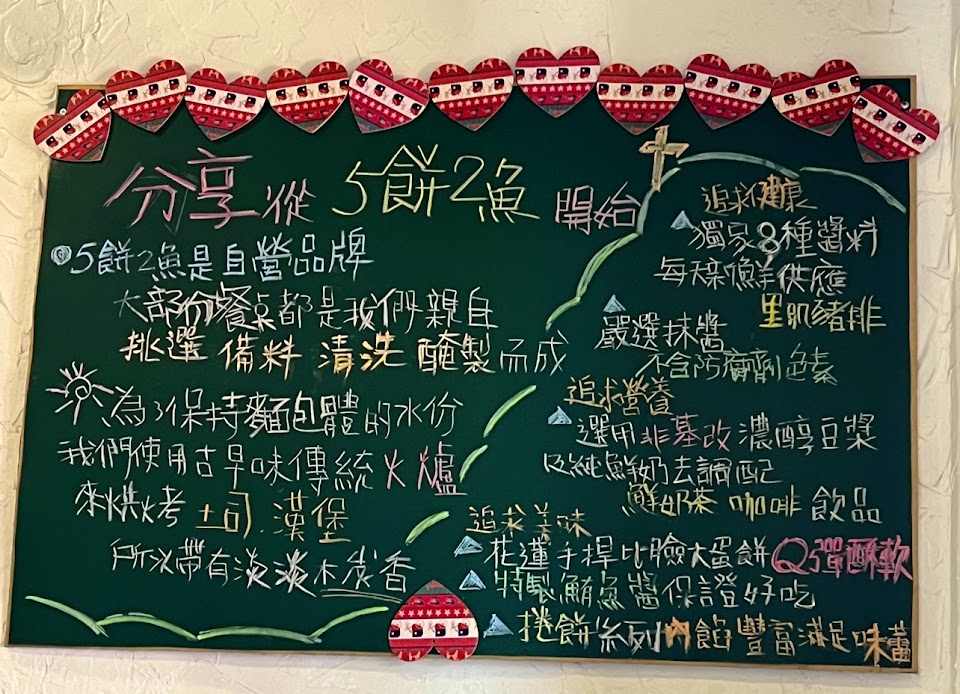 分享從5餅2魚開始
5餅2魚是自營品牌
大部份餐桌都是我們親自
挑選 備料 清洗 醃製而成
為了保持麵包體的水份
我們使用古早味傳統火爐
來烘烤 土司.漢堡
所以帶有淡淡木炭香
追求健康
獨家8種醬料
每天新鮮供應
里肌豬排
嚴選抹醬
不含防腐劑色素
追求營養
選用非基改濃醇豆漿
只純鮮奶去調配
鮮奶茶 咖啡 飲品
追求美味
花蓮手捍比臉大蛋餅Q彈酥軟
特製鮪魚醬保證好吃
捲餅系列內餡豐富滿足味蕾